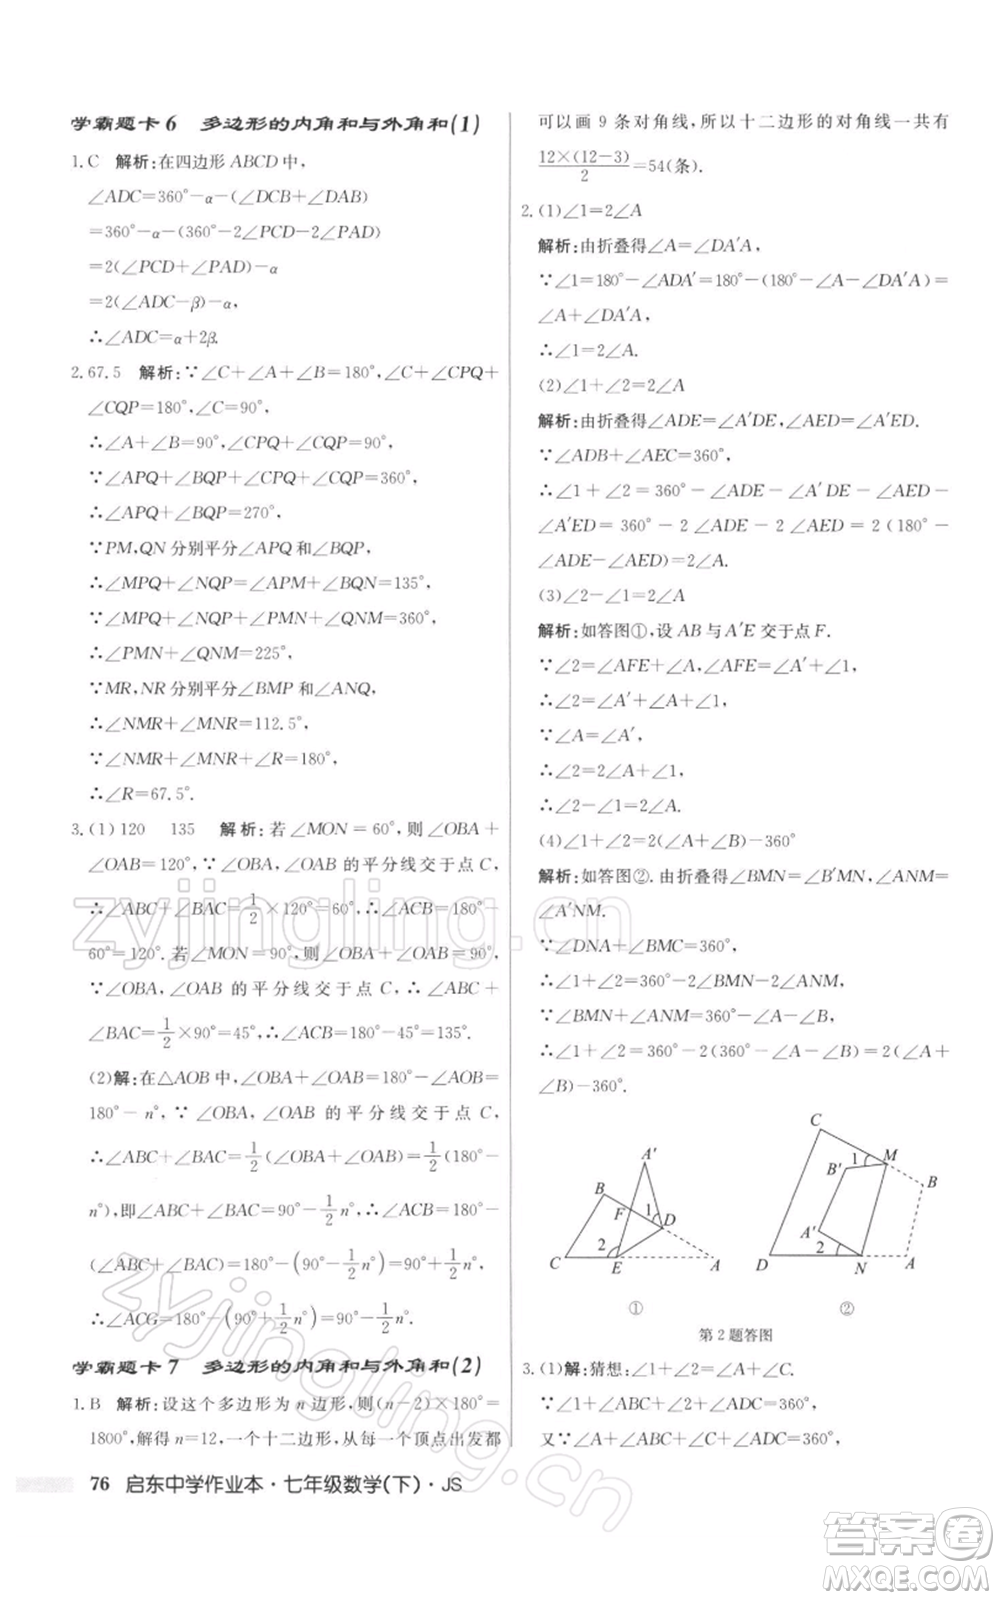 学霸题卡 6 多边形的内角和与外角和(1)
1.C 解析:在四边形 ABCD 中,
∠ADC=360°-α-(∠DCB+∠DAB)
=360°-α-(360°-2∠PCD-2∠PAD)
=2(∠PCD+∠PAD)-α
=2(∠ADC-β)-α,
∴∠ADC=α+2β.
2.67.5 解析:∵∠C+∠A+∠B=180°,∠C+∠CPQ+
∠CQP=180°,∠C=90°,
∴∠A+∠B=90°,∠CPQ+∠CQP=90°,
∵∠APQ+∠BQP+∠CPQ+∠CQP=360°,
∴∠APQ+∠BQP=270°,
∵PM,QN 分别平分∠APQ 和∠BQP,
∴∠MPQ+∠NQP=∠APM+∠BQN=135°,
∵∠MPQ+∠NQP+∠PMN+∠QNM=360°,
∴∠PMN+∠QNM=225°,
∵MR,NR 分别平分∠BMP 和∠ANQ,
∴∠NMR+∠MNR=112.5°,
∵∠NMR+∠MNR+∠R=180°,
∴∠R=67.5°.
3.(1)120 135 解析:若∠MON=60°,则∠OBA+
∠OAB=120°,∵∠OBA,∠OAB 的平分线交于点 C,
∴∠ABC+∠BAC=1/2×120°=60°,∴∠ACB=180°-
60°=120°.若∠MON=90°,则∠OBA+∠OAB=90°,
∵∠OBA,∠OAB 的平分线交于点 C,∴∠ABC+
∠BAC=1/2×90°=45°,∴∠ACB=180°-45°=135°.
(2)解:在△AOB 中,∠OBA+∠OAB=180°-∠AOB=
180°-n°,∵∠OBA,∠OAB 的平分线交于点 C,
∴∠ABC+∠BAC=1/2(∠OBA+∠OAB)=1/2(180°-
n°),即∠ABC+∠BAC=90°-1/2n°,∴∠ACB=180°-
(∠ABC+∠BAC)=180°-(90°-1/2n°)=90°+1/2n°,
∴∠ACG=180°-(90°+1/2n°)=90°-1/2n°.
学霸题卡 7 多边形的内角和与外角和(2)
1.B 解析:设这个多边形为 n 边形,则(n-2)×180°=
1800°,解得 n=12,一个十二边形,从每一个顶点出发都
76 启东中学作业本·七年级数学(下)·JS
可以画 9 条对角线,所以十二边形的对角线一共有
12×(12-3)/2=54(条).
2.(1)∠1=2∠A
解析:由折叠得∠A=∠DA′A,
∵∠1=180°-∠ADA′=180°-(180°-∠A-∠DA′A)=
∠A+∠DA′A,
∴∠1=2∠A.
(2)∠1+∠2=2∠A
解析:由折叠得∠ADE=∠A′DE,∠AED=∠A′ED.
∵∠ADB+∠AEC=360°,
∴∠1+∠2=360°-∠ADE-∠A′DE-∠AED-
∠A′ED=360°-2∠ADE-2∠AED=2(180°-
∠ADE-∠AED)=2∠A.
(3)∠2-∠1=2∠A
解析:如答图①,设 AB 与 A′E 交于点 F.
∵∠2=∠AFE+∠A,∠AFE=∠A′+∠1,
∴∠2=∠A′+∠A+∠1,
∵∠A=∠A′,
∴∠2=2∠A+∠1,
∴∠2-∠1=2∠A.
(4)∠1+∠2=2(∠A+∠B)-360°
解析:如答图②.由折叠得∠BMN=∠B′MN,∠ANM=
∠A′NM.
∵∠DNA+∠BMC=360°,
∴∠1+∠2=360°-2∠BMN-2∠ANM,
∵∠BMN+∠ANM=360°-∠A-∠B,
∴∠1+∠2=360°-2(360°-∠A-∠B)=2(∠A+
∠B)-360°.
A′
B
F
1
D
2
C
E
A
①
C
B′
1
M
B
A′
2
D
N
A
②
第 2 题答图
3.(1)解:猜想:∠1+∠2=∠A+∠C.
∵∠1+∠ABC+∠2+∠ADC=360°,
又∵∠A+∠ABC+∠C+∠ADC=360°,
zyjingling.cn
zyjingling.cn
答案卷
MXQE.COM